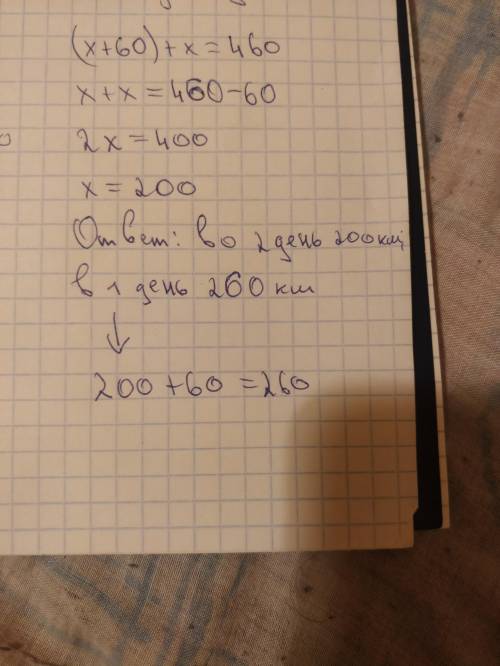 (x+60)+x=460
x+x=460-60
2x=400
x=200
Ответ: во 2 день 200 км,
в 1 день 260 км
↓
200+60=260